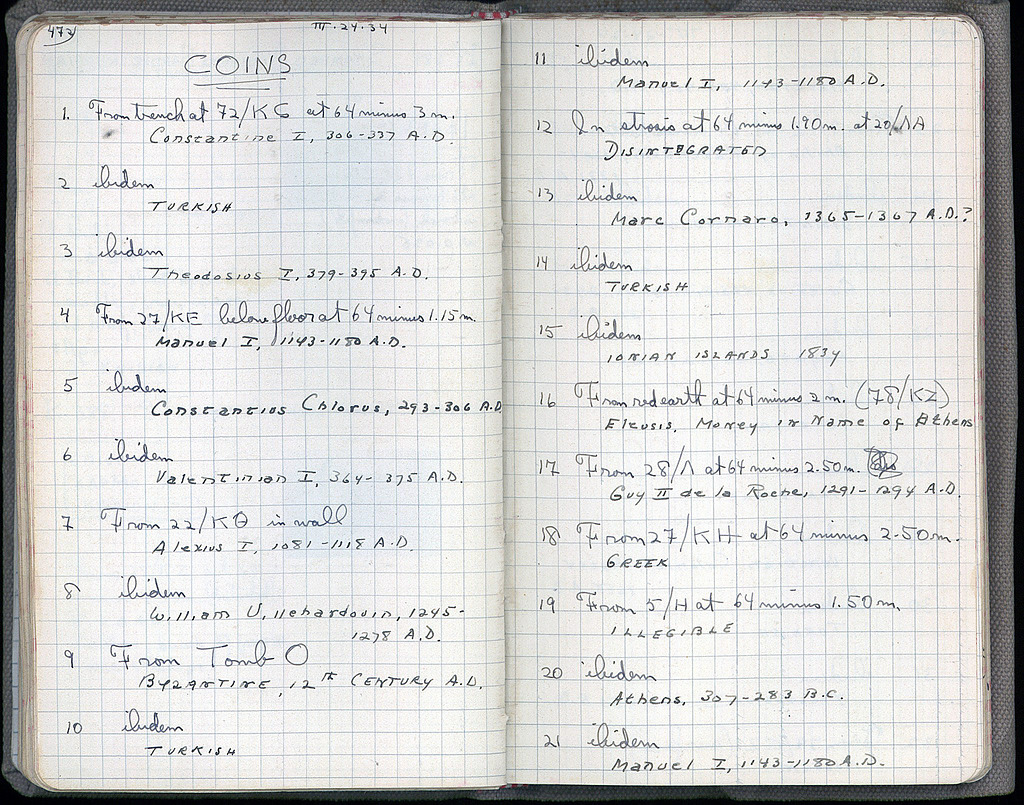 473
III.24.34
COINS
1. From trench at 72/KS at 64 minus 3 m.
Constantine I, 306-337 A.D.
2 ibidem
TURKISH
3 ibidem
Theodosius I, 379-395 A.D.
4 From 27/KE below floor at 64 minus 1.15 m.
Manuel I, 1143-1180 A.D.
5 ibidem
Constantius Chlorus, 293-306 A.D.
6 ibidem
Valentinian I, 364-375 A.D.
7 From 22/KΘ in wall
Alexius I, 1081-1118 A.D.
8 ibidem
William Villehardouin, 1245-
1278 A.D.
9 From Tomb O
BYZANTINE, 12TH CENTURY A.D.
10 ibidem
TURKISH
11 ibidem
Manuel I, 1143-1180 A.D.
12 In strosis at 64 minus 1.90 m. at 20/ΛA
DISINTEGRATED
13 ibidem
Marc Cornaro, 1365-1367 A.D.?
14 ibidem
TURKISH
15 ibidem
IONIAN ISLANDS 1834
16 From red earth at 64 minus 2 m. (78/KZ)
Eleusis, Money in Name of Athens
17 From 28/Λ at 64 minus 2.50 m.
Guy II de la Roche, 1291-1294 A.D.
18 From 27/KH at 64 minus 2.50 m.
GREEK
19 From 5/H at 64 minus 1.50 m.
ILLEGIBLE
20 ibidem
Athens, 307-283 B.C.
21 ibidem
Manuel I, 1143-1180 A.D.